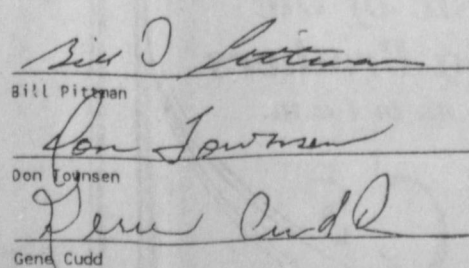 Bill D Pittman
Bill Pittman
Don Townsen
Don Townsen
Gene Cudd
Gene Cudd